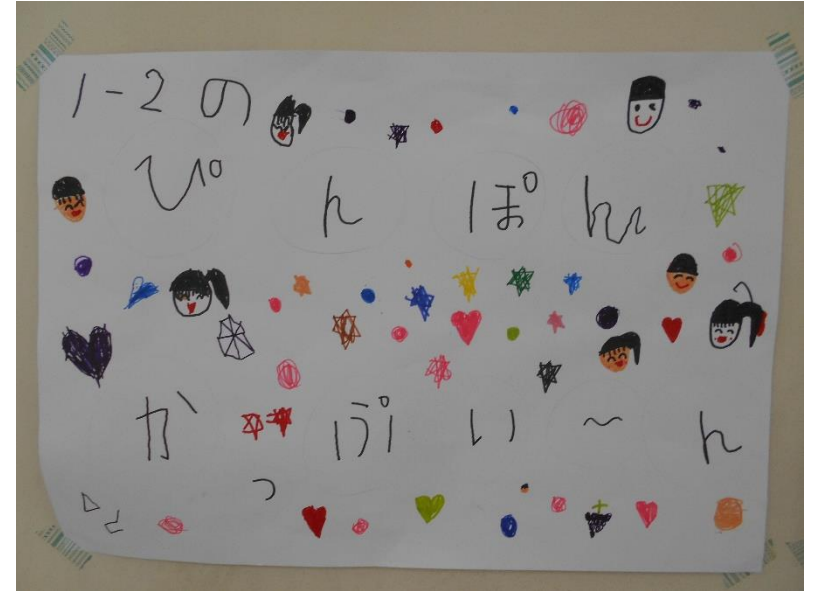 1-2の
ぴんぽん
かっぷい〜ん